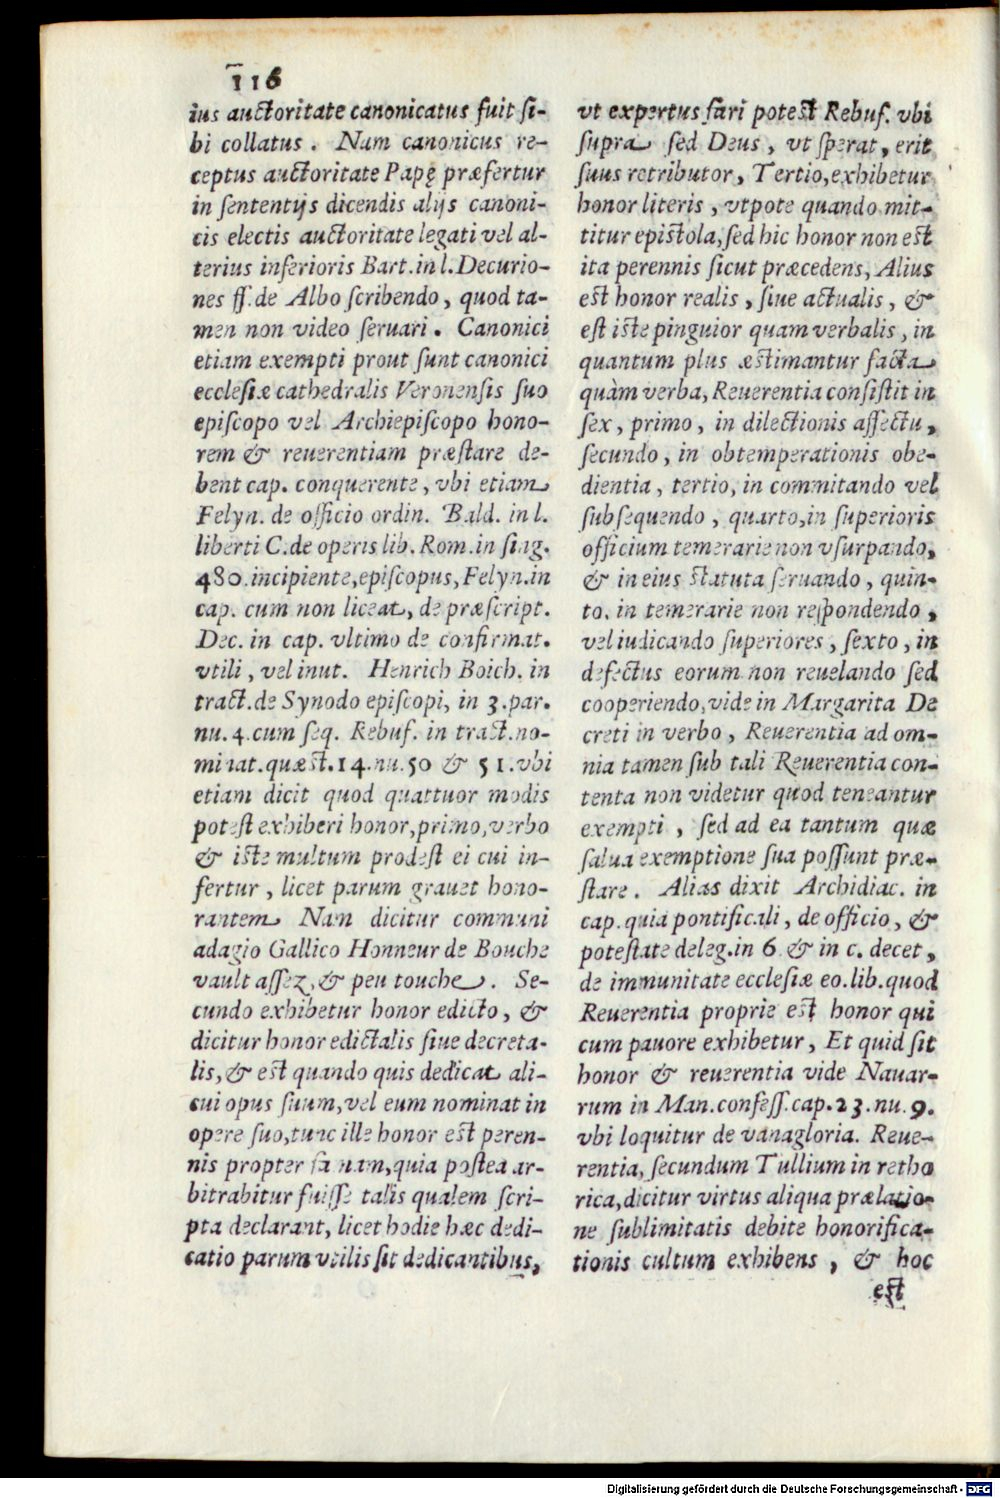 116
ius auctoritate canonicatus fuit ſi-
bi collatus . Nam canonicus re-
ceptus auctoritate Papę præfertur
in ſententijs dicendis alijs canoni-
cis electis auctoritate legati vel al-
terius inferioris Bart. in l. Decurio-
nes ff. de Albo ſcribendo , quod ta-
men non video ſeruari . Canonici
etiam exempti prout ſunt canonici
eccleſiæ cathedralis Veronenſis ſuo
epiſcopo vel Archiepiſcopo hono-
rem & reuerentiam præſtare de-
bent cap. conquerente , vbi etiam
Felyn. de officio ordin. Bald. in l.
liberti C. de operis lib. Rom. in ſing.
480. incipiente, epiſcopus, Felyn. in
cap. cum non liceat, de præſcript.
Dec. in cap. vltimo de confirmat.
vtili , vel inut. Henrich Boich. in
tract. de Synodo epiſcopi, in 3. par.
nu. 4. cum ſeq. Rebuf. in tract. no-
minat. quæſt. 14. nu. 50 & 51. vbi
etiam dicit quod quattuor modis
poteſt exhiberi honor, primo, verbo
& iſte multum prodeſt ei cui in-
fertur , licet parum grauet hono-
rantem Nam dicitur communi
adagio Gallico Honneur de Bouche
vault aſſez, & peu touche . Se-
cundo exhibetur honor edicto , &
dicitur honor edictalis ſiue decreta-
lis, & eſt quando quis dedicat ali-
cui opus ſuum, vel eum nominat in
opere ſuo, tunc ille honor eſt peren-
nis propter famam, quia poſtea ar-
bitrabitur fuiſſe talis qualem ſcri-
pta declarant, licet hodie hæc dedi-
catio parum vtilis ſit dedicantibus,
vt expertus fari poteſt Rebuf. vbi
ſupra ſed Deus , vt ſperat, erit
ſuus retributor, Tertio, exhibetur
honor literis , vtpote quando mit-
titur epiſtola, ſed hic honor non eſt
ita perennis ſicut præcedens, Alius
eſt honor realis , ſiue actualis , &
eſt iſte pinguior quam verbalis , in
quantum plus æſtimantur facta
quàm verba, Reuerentia conſiſtit in
ſex , primo , in dilectionis affectu ,
ſecundo , in obtemperationis obe-
dientia , tertio, in commitando vel
ſubſequendo , quarto, in ſuperioris
officium temerarie non vſurpando,
& in eius ſtatuta ſeruando , quin-
to. in temerarie non reſpondendo ,
vel iudicando ſuperiores , ſexto , in
defectus eorum non reuelando ſed
cooperiendo, vide in Margarita De
creti in verbo , Reuerentia ad om-
nia tamen ſub tali Reuerentia con-
tenta non videtur quod teneantur
exempti , ſed ad ea tantum quæ
ſalua exemptione ſua poſſunt præ-
ſtare . Alias dixit Archidiac. in
cap. quia pontificali , de officio , &
poteſtate deleg. in 6 & in c. decet ,
de immunitate eccleſiæ eo. lib. quod
Reuerentia proprie eſt honor qui
cum pauore exhibetur , Et quid ſit
honor & reuerentia vide Nauar-
rum in Man. confeſſ. cap. 23. nu. 9.
vbi loquitur de vanagloria. Reue-
rentia, ſecundum Tullium in retho
rica, dicitur virtus aliqua prælatio-
ne ſublimitatis debite honorifica-
tionis cultum exhibens , & hoc
eſt
Digitalisierung gefördert durch die Deutsche Forschungsgemeinschaft - DFG